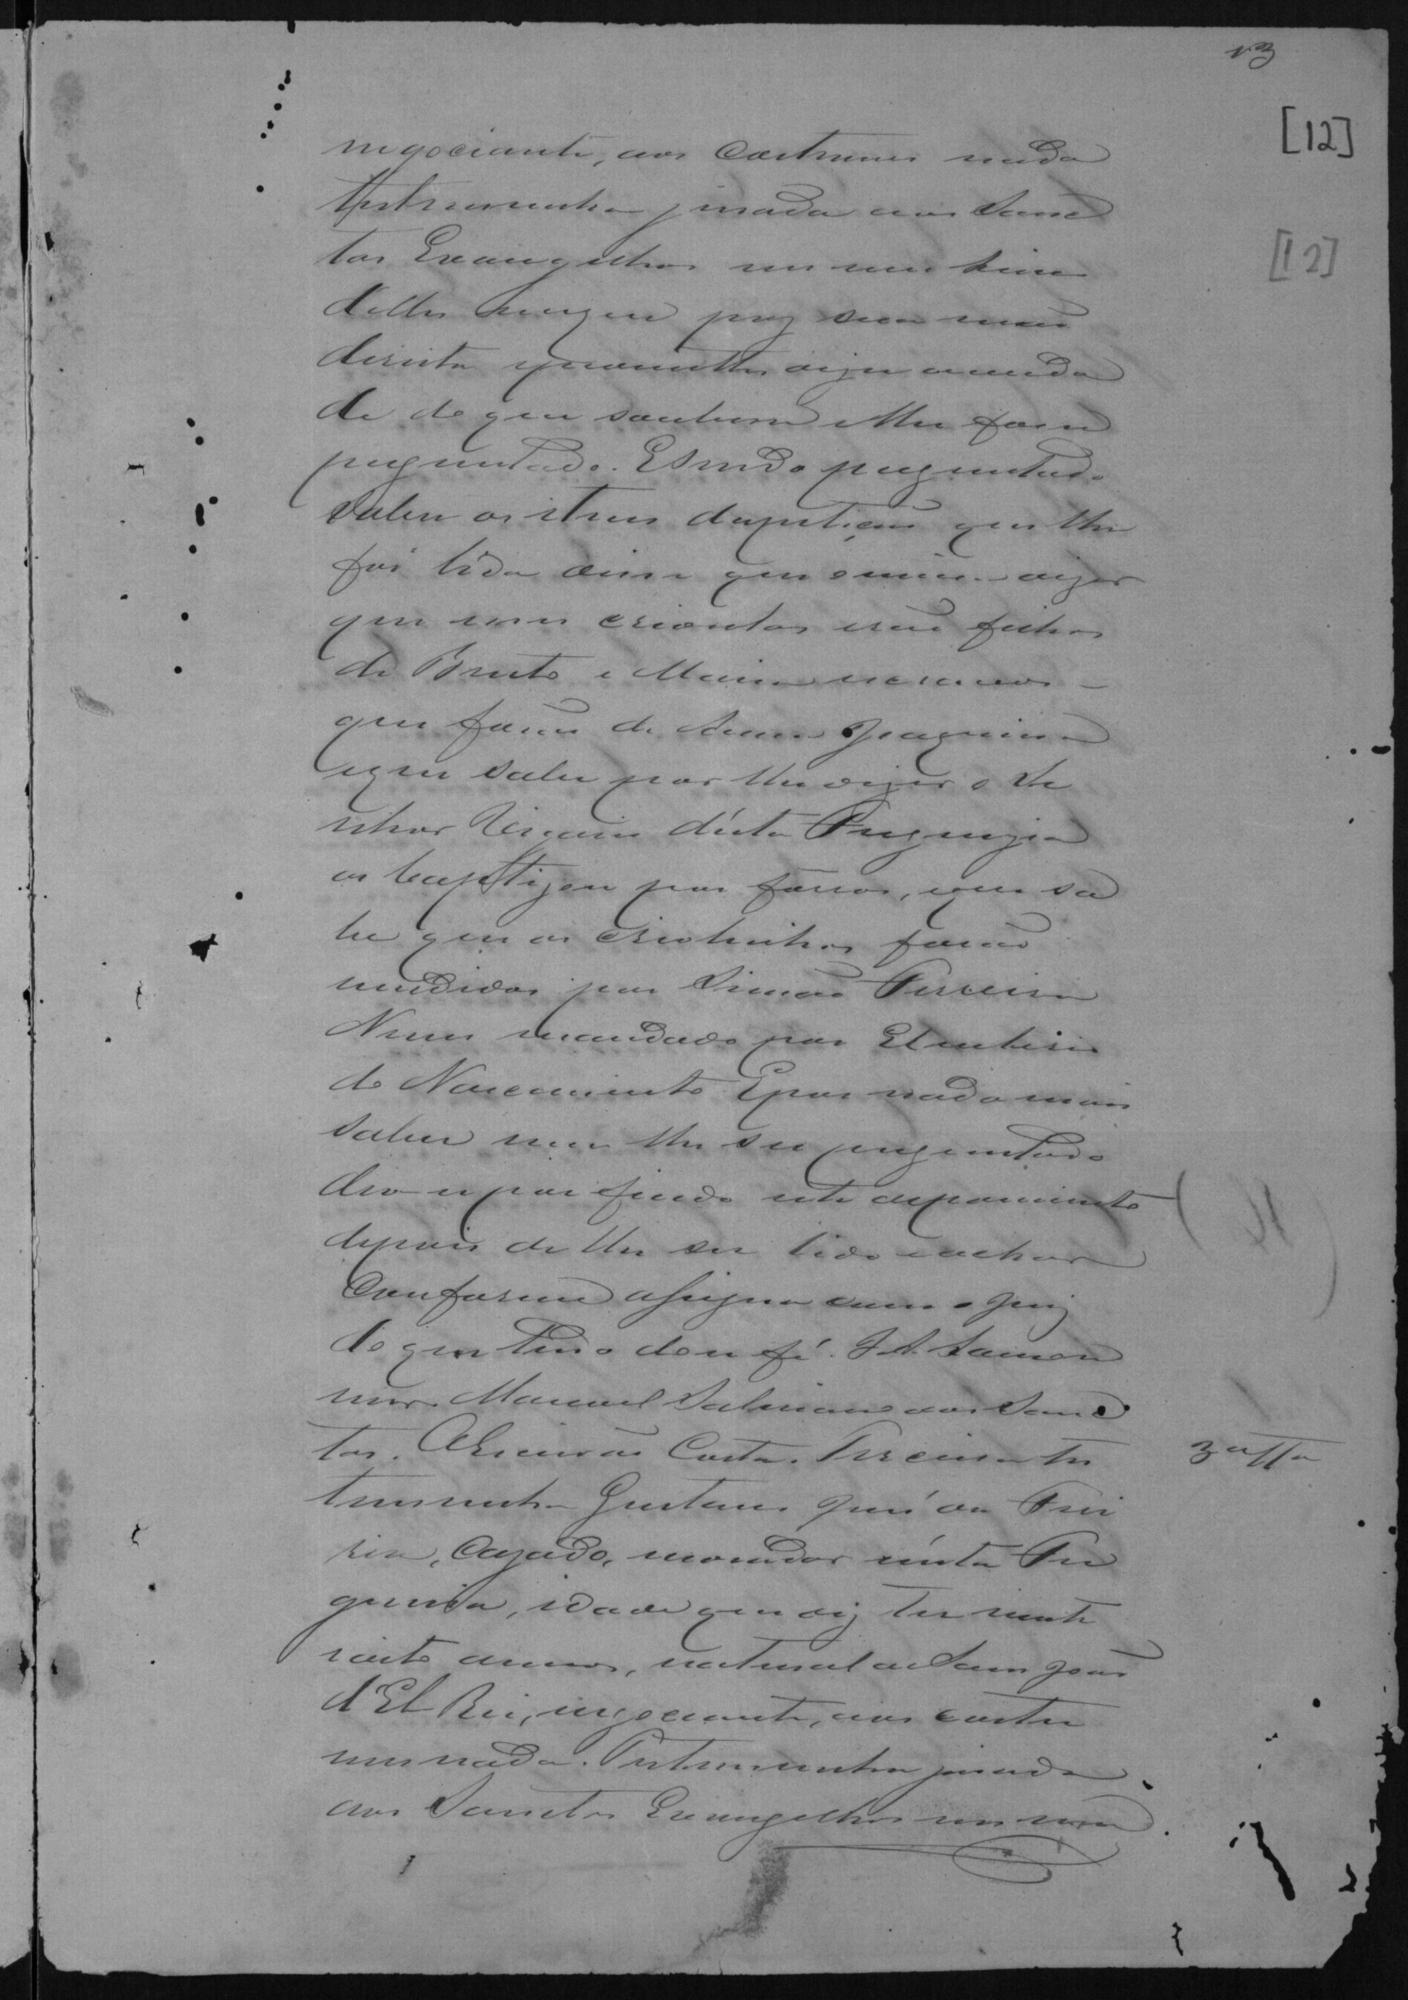 13
[12]
[12]
negociante, aos costumes nada
Testemunha jurada aos Sanc
tos Evangelhos em um livro
delles em que poz sua mão
direita prometteu dizer a verda
de do que soubesse e lhe fosse
perguntado. E sendo perguntado
sobre os itens da petição que lhe
foi lida disse que ouvira dizer
que esses crioulos erão filhos
de Bento e Maria
que forão de Anna Joaquina
e que sabe por lhe dizer o Se
nhor Vigario d'esta Freguezia
os baptizou por forros, e que sa
be que os crioulinhos forão
vendidos por Simão Ferreira
Nunes mandado por Eleuterio
do Nascimento. E por nada mais
saber nem lhe ser perguntado
deo-se por findo este depoimento
depois de lhe ser lido e achar
conforme assigna com o Juiz
do que tudo dou fé.
Manoel dos Sanc
tos. O Escrivão Costa. Terceira tes
temunha Gustavo José da Frei
ria, cazado, morador n'esta Fre
guezia, idade que diz ter vinte
e oito annos, natural de Sam João
d'El Rei, negociante, aos costu
mes nada. Testemunha jurada
aos Sanctos Evangelhos em um
3ª